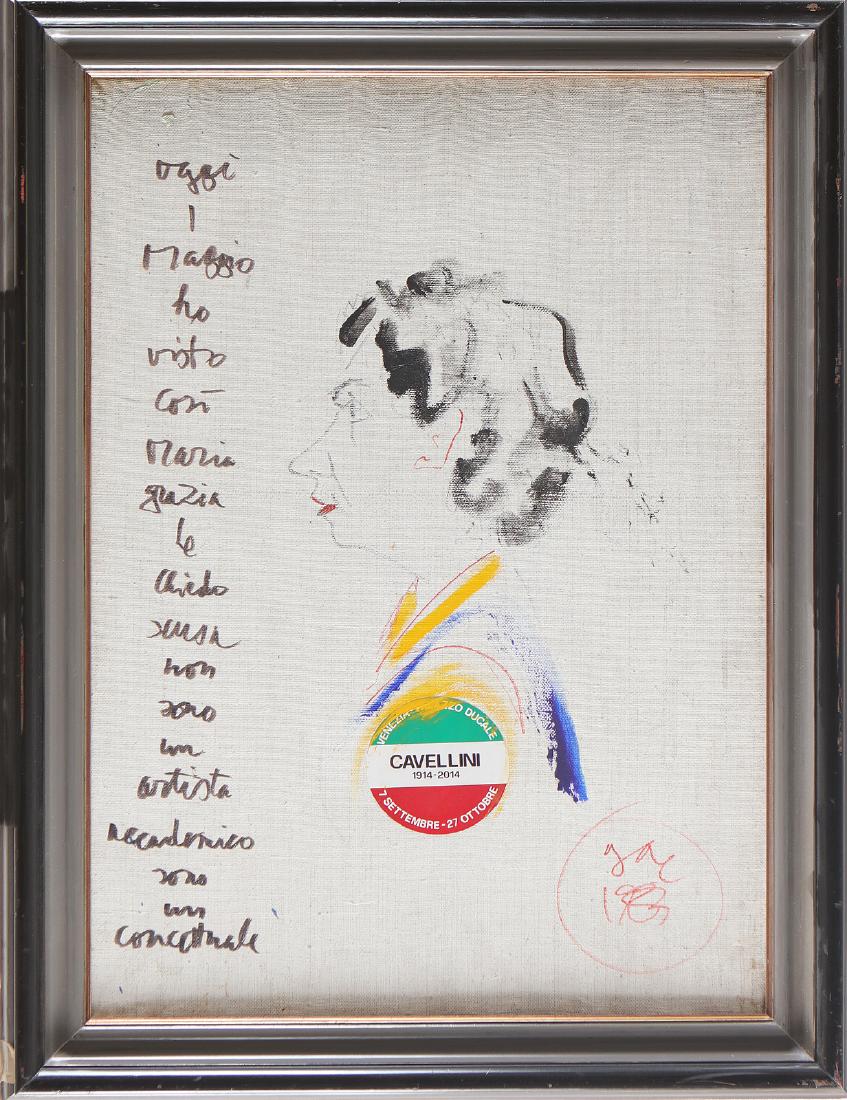 oggi
1
Maggio
ho
visto
così
Maria
grazia
le
chiedo
scusa
non
sono
un
artista
accademico
sono
un
concettuale
VENEZIA ZO DUCALE
CAVELLINI
1914-2014
7 SETTEMBRE - 27 OTTOBRE
gac